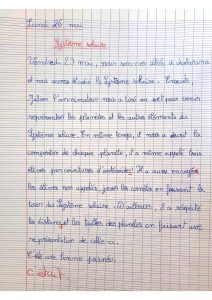 Lundi 26 mai
Système solaire
Vendredi 23 mai, nous sommes allés à
et nous avons étudié le système solaire. Ensuite,
Julien l'animateur nous a tous au sort pour venir
représenter les planètes et les autres éléments du
système solaire. En même temps, il nous a décrit la
composition de chaque planète, il a même appelé trois
élèves pour ceintures d'astéroïdes. Il a aussi
les élèves non appelés, pour les comètes en faisant le
tour du système solaire. D'ailleurs, il a respecté
les distances et les tailles des planètes en faisant une
représentation de celle-ci.
C'était une bonne journée.